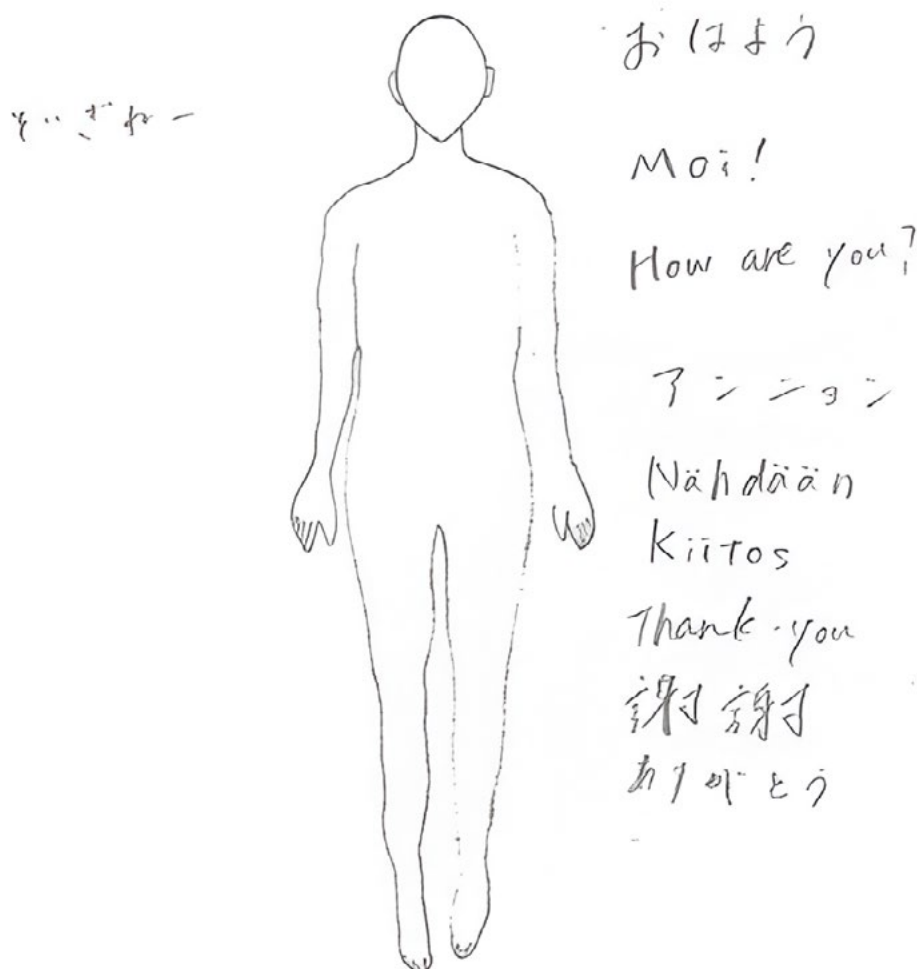 おはよう
Moi!
How are you?
アンニョン
Nähdään
Kiitos
Thank you
謝謝
ありがとう